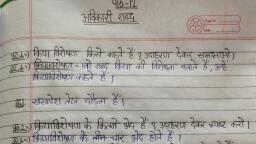 पाठ-12
अविकारी शब्द
प्र.1-) क्रिया विशेषण किसे कहते हैं? उदाहरण देकर समझाओ।
उ.1-) क्रियाविशेषण - जो शब्द क्रिया की विशेषता बताते हैं, उन्हें
क्रियाविशेषण कहते हैं।
खरगोश तेज दौड़ता है।
प्र.2-) क्रियाविशेषण के कितने भेद हैं? उदाहरण देकर स्पष्ट करो।
उ.2-) क्रियाविशेषण के चार भेद होते हैं।